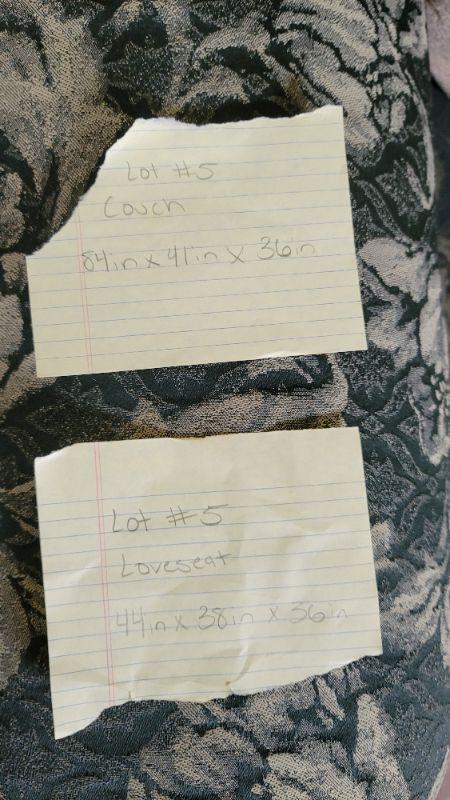 Lot #5
Couch
84in x 41in x 36in
Lot #5
Loveseat
44in x 38in x 36in